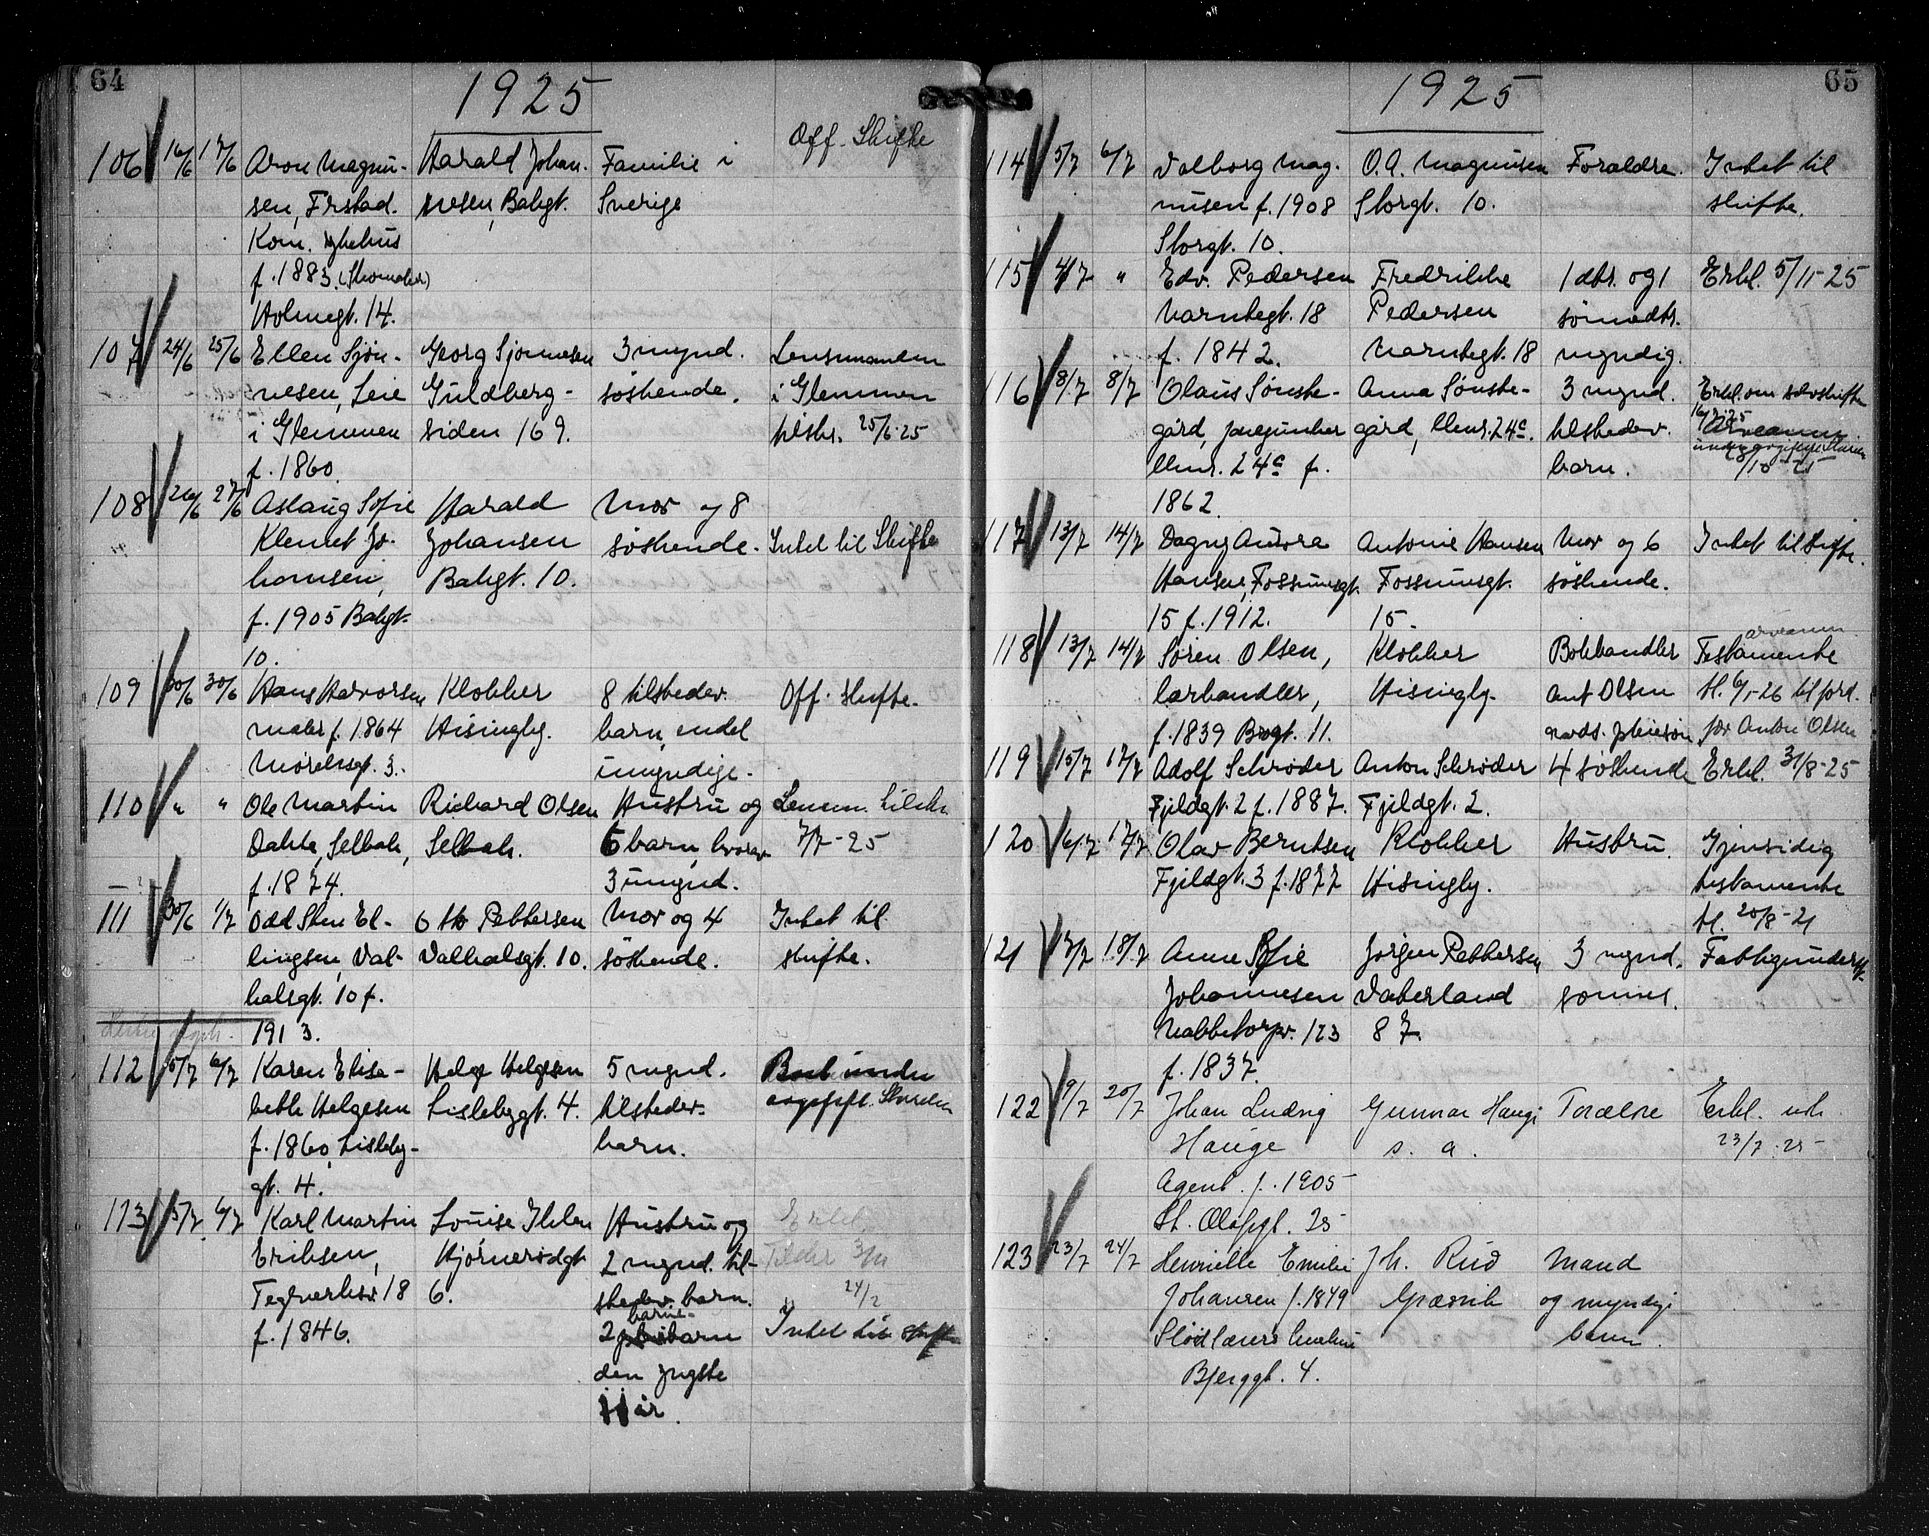 64
1925
106 16/6 17/6 Aron Magnu- Harald Johan- Familie i Off. Skifte
sen, Frstad. nesen, Bakgt. Sverige
Kom. sykehus
f. 1883. (Skomaker)
Holmegt. 14.
107 24/6 25/6 Ellen Sjøn- Georg Sjønnesen 3 mynd. Lensmanden
nesen, Leie Guldberg- søskende. i Glemmen
i Glemmen siden 169. tilskr. 25/6-25
f. 1860.
108 26/6 27/6 Aslaug Sofie Harald Mor og 8
Klemet Jo- Johansen søskende. Intet til Skifte
hansen, Bakgt. 10.
f. 1905 Bakgt.
10.
109 30/6 30/6 Hans Halvorsen Klokker 8 tilstedev. Off. skifte.
maler f. 1864 Hisingby. barn, endel
gt. 3. umyndige.
110 " " Ole Martin Richard Olsen Hustru og Lensm. tilskr.
Dahle, Selbak, Selbak. 6 barn, hvorav 7/7-25
f. 1874. 3 umynd.
111 30/6 1/7 Odd Sten El- Otto Pettersen Mor og 4 Intet til
lingsen, Val- Valhalsgt. 10. søskende. skifte.
halsgt. 10 f.
1913.
112 5/7 6/7 Karen Elisa- Helge Helgesen 5 mynd. Boet under
beth Helgesen Lislebygt. 4. tilstedev.
f. 1860, Lisleby- barn.
gt. 4.
113 5/7 6/7 Karl Martin Louise Ihlen Hustru og Erkl.
Eriksen, Hjørnerødgt. 2 mynd. til-
Teglverksv. 18 6. stedev. barn. 24/2
f. 1846. 2 barne-barn Intet til skifte
den yngste
11 år.
65
1925
114 5/7 6/7 Valborg Mag- O.A. Magnusen Forældre. Intet til
nusen f. 1908 Storgt. 10. skifte.
Storgt. 10.
115 4/7 " Edv. Pedersen Fredrikke 1 dtr. og 1 Erkl. 5/11-25
Varntegt. 18 Pedersen sønnedtr.
f. 1842. Varntegt. 18 myndig.
116 8/7 8/7 Olaus Sønste- Anna Sønste- 3 mynd. Erkl. om selvskifte
gård, gård, 24c. tilstedev. 16/7 25
24c f. barn.
1862.
117 13/7 14/7 Dagny Aurora Antonie Hansen Mor og 6 Intet til skifte.
Hansen, Fossumsgt. Fossumsgt. søskende.
15 f. 1912. 15.
118 13/7 14/7 Søren Olsen, Klokker Bokhandler Testamente
lærhandler, Hisingby. Ant Olsen tl. 6/1-26 til ford.
f. 1839 Brogt. 11. for Anton Olsen
119 15/7 17/7 Adolf Schrøder Anton Schrøder 4 søskende Erkl. 31/8-25
Fjeldgt. 2 f. 1887. Fjeldgt. 2.
120 16/7 17/7 Olav Berntsen Klokker Hustru. Gjensidig
Fjeldgt. 3 f. 1877 Hisingby. testamente
tl. 20/8-21
121 17/7 18/7 Anne Sofie Jørgen Pettersen 3 mynd. Fattigunderst.
Johannesen Vaterland sønner.
Nabbetorpv. 123 87.
f. 1837.
122 19/7 20/7 Johan Ludvig Gunnar Hauge Forældre Erkl. udst.
Hauge s. a. 23/7. 25
Agent f. 1905
St. Olafsgt. 25
123 23/7 24/7 Henriette Emilie Jh. Rud Mand
Johansen f. 1849 Græsvik og myndige
Sløidlærers barn.
Bjerggt. 4.